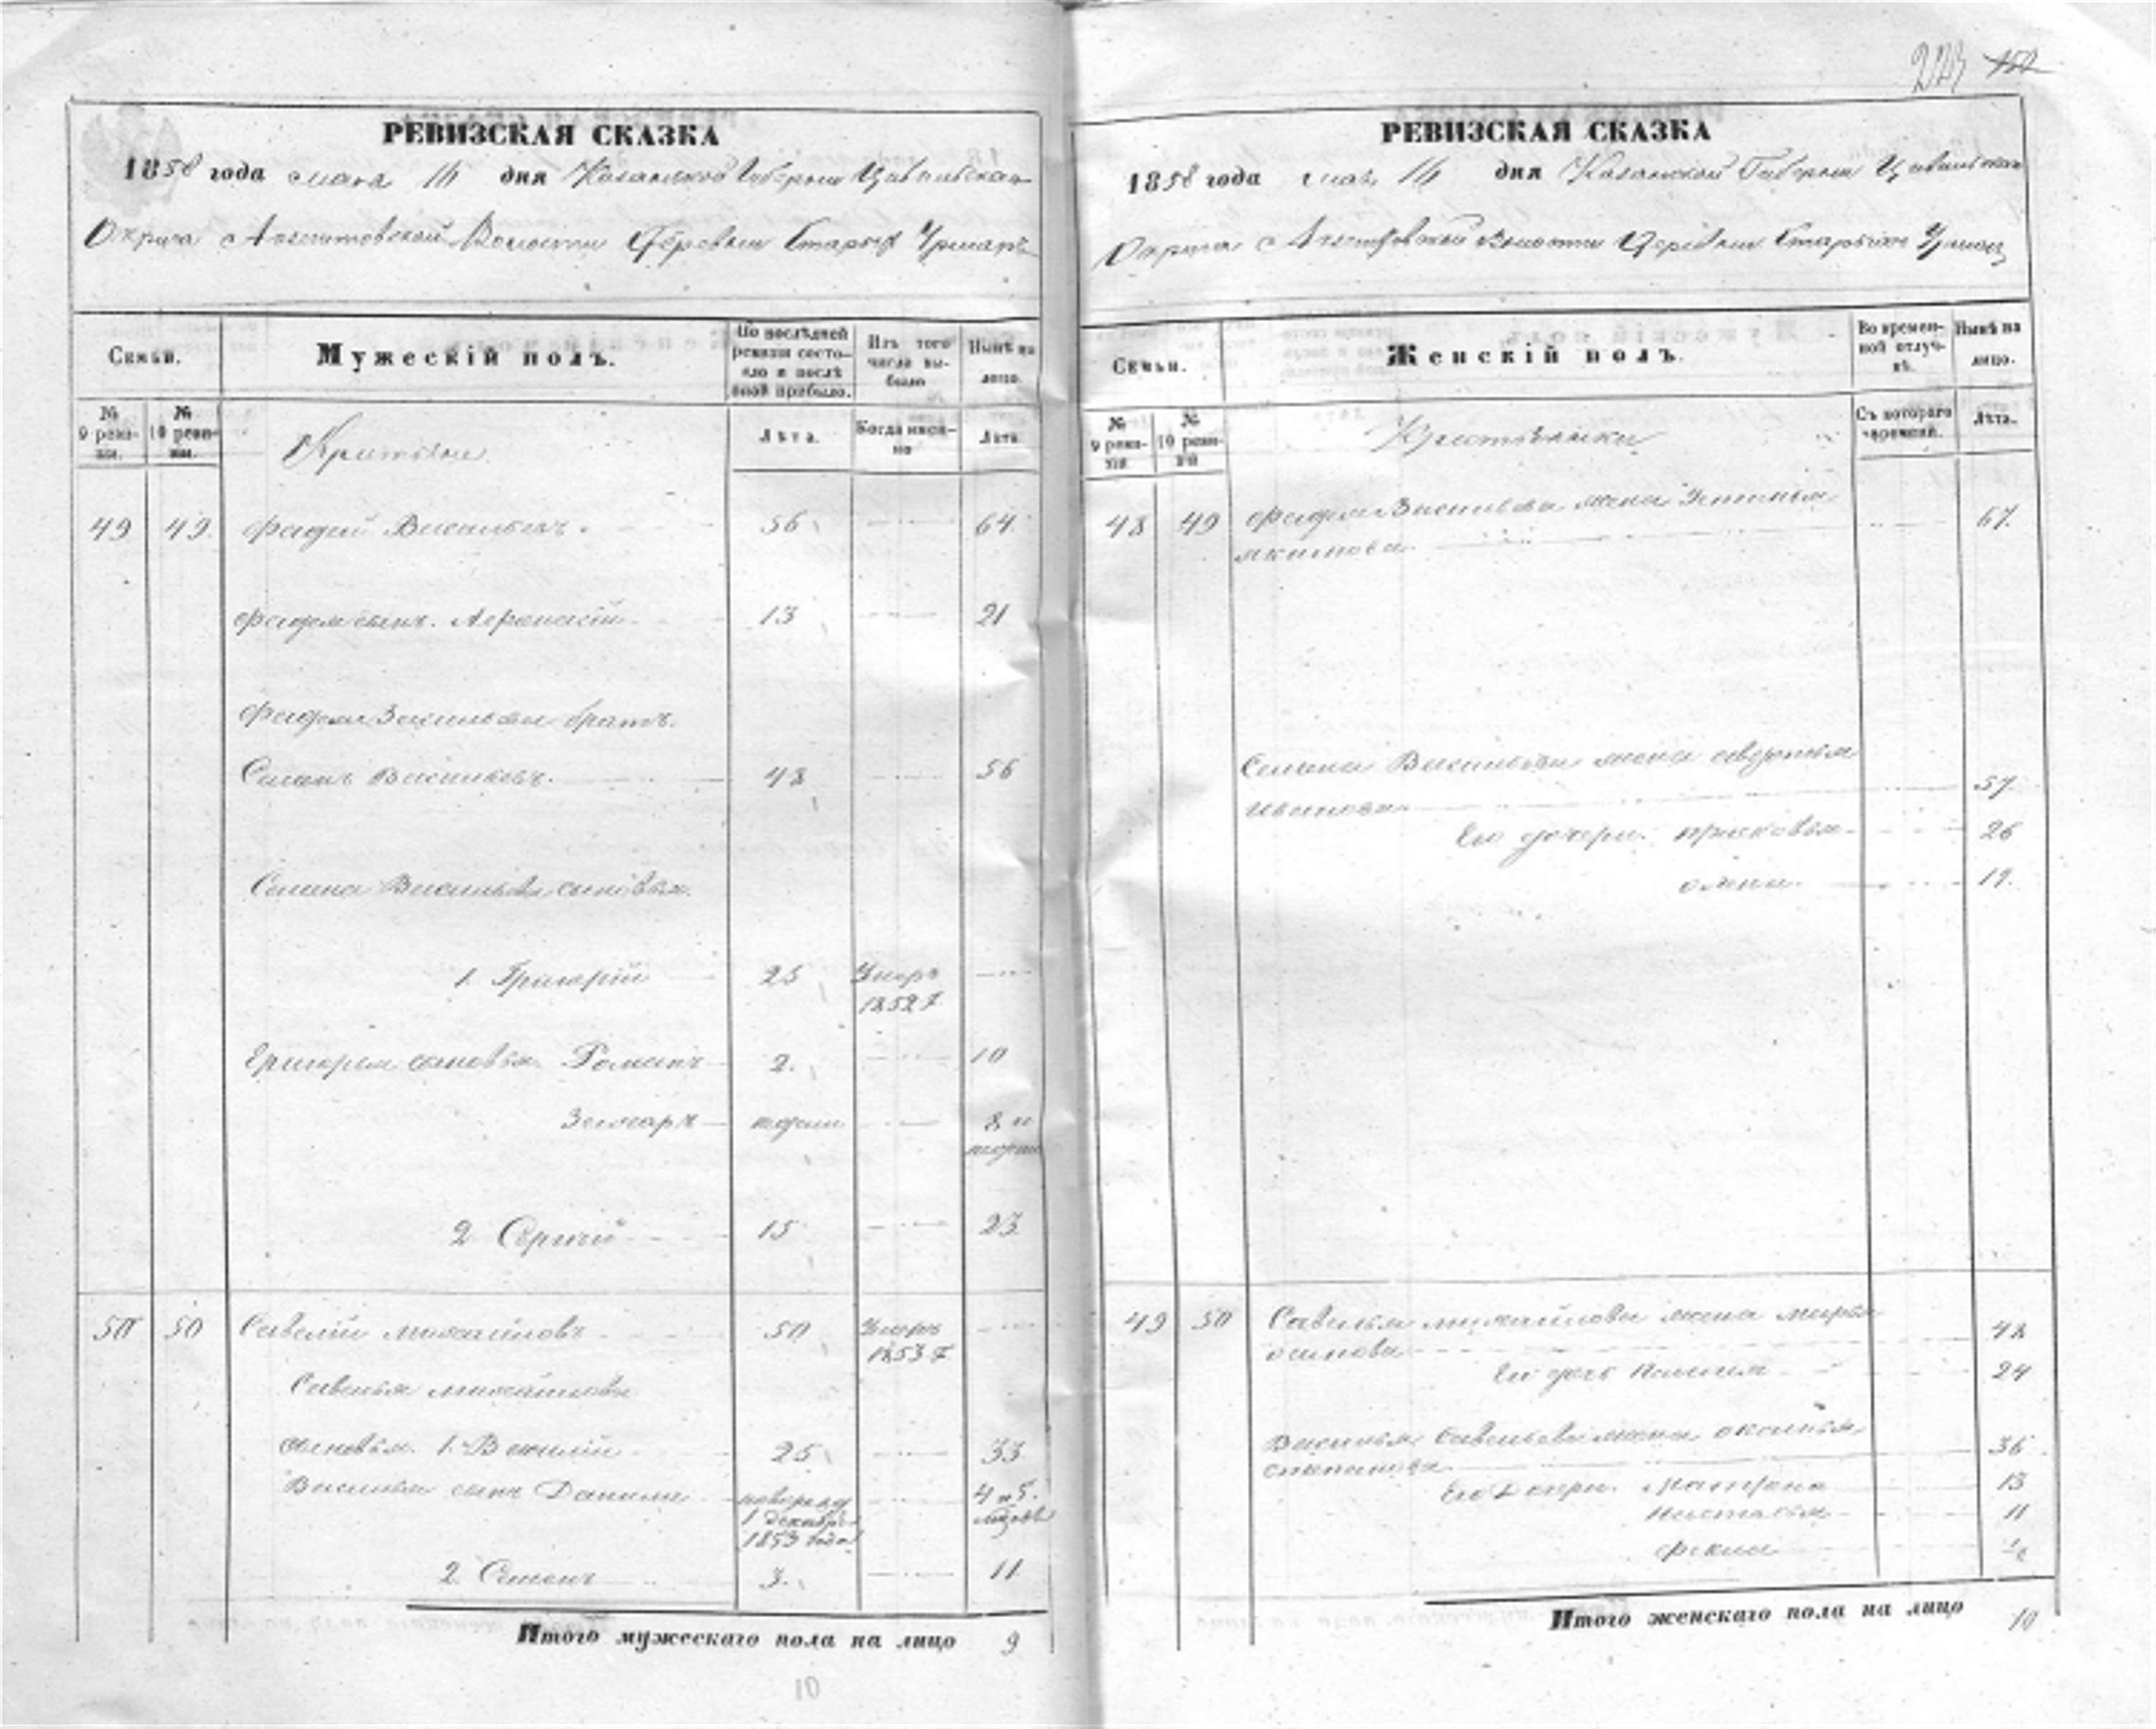 223 152
РЕВИЗСКАЯ СКАЗКА
1858 года мая 16 дня Казанской Губернии Цивильскаго
Округа Волости Деревни Старых Урмаръ
Семьи.
Мужескій полъ.
По послѣдней ревизіи состояло и послѣ оной прибыло.
Изъ того числа выбыло
Нынѣ на лицо.
№ 9 ревизіи.
№ 10 ревизіи.
Крестьяне
Лѣта.
Когда именно
Лѣта
49 49 Фадей Васильевъ. 56 64
Фадея сынъ. Афанасій 13 21
Фадея Васильева братъ.
Семенъ Васильевъ. 48 56
Семена Васильева сыновья.
1. Григорій 25 Умеръ 1852 г
Григорья сыновья Романъ 2. 10
Захаръ 8 и
2 Сергій 15 23
50 50 Савелій Михайловъ 50 Умеръ 1853 г
Савелья Михайлова
сыновья. 1. Василій 25 33
Василья сынъ Данила 4 и 5.
1 декабря
1853 года
2 Семенъ 3. 11
Итого мужескаго пола на лицо 9
10
РЕВИЗСКАЯ СКАЗКА
1858 года мая 16 дня Казанской Губерніи Цивильскаго
Округа Волости Деревни Старыхъ Урмаръ
Семьи.
Женскій полъ.
Во временной отлучкѣ.
Нынѣ на лицо.
№ 9 ревизіи
№ 10 ревизіи
Крестьянки
Съ котораго времени.
Лѣта.
48 49 Фадея Васильева жена Устинья
Якимова 67.
Семена Васильева жена Авдотья
Иванова 57.
Его дочери. Прасковья 26
19.
49 50 Савелья Михайлова жена Марья
Осипова 48
Его дочь 24
Василья Савельева жена
Степанова 36
Его дочери. Матрена 13
Настасья 11
Фекла
Итого женскаго пола на лицо 10